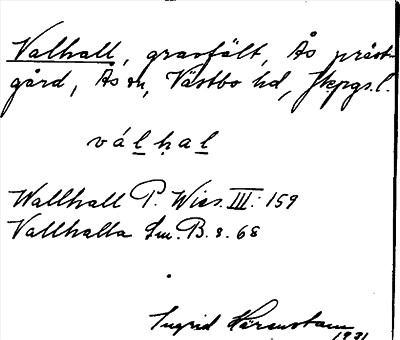 Valhall, gravfält, Ås präst-
gård, Ås sn, Västbo hd, Jkpgs. l.
válhal
Wallhall P. Wies. III: 159
Vallhalla Sm. B. s. 68
Ingrid
1931